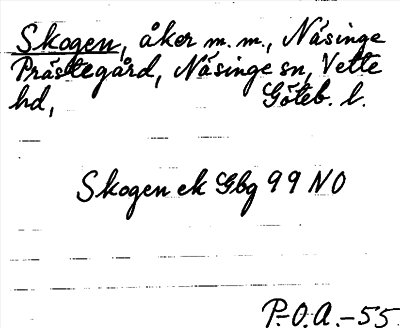 Skogen, åker m.m., Näsinge
Prästegård, Näsinge sn, Vette
hd, Göteb. l.
Skogen ek Gbg 99 NO
P.-O.A.-55.